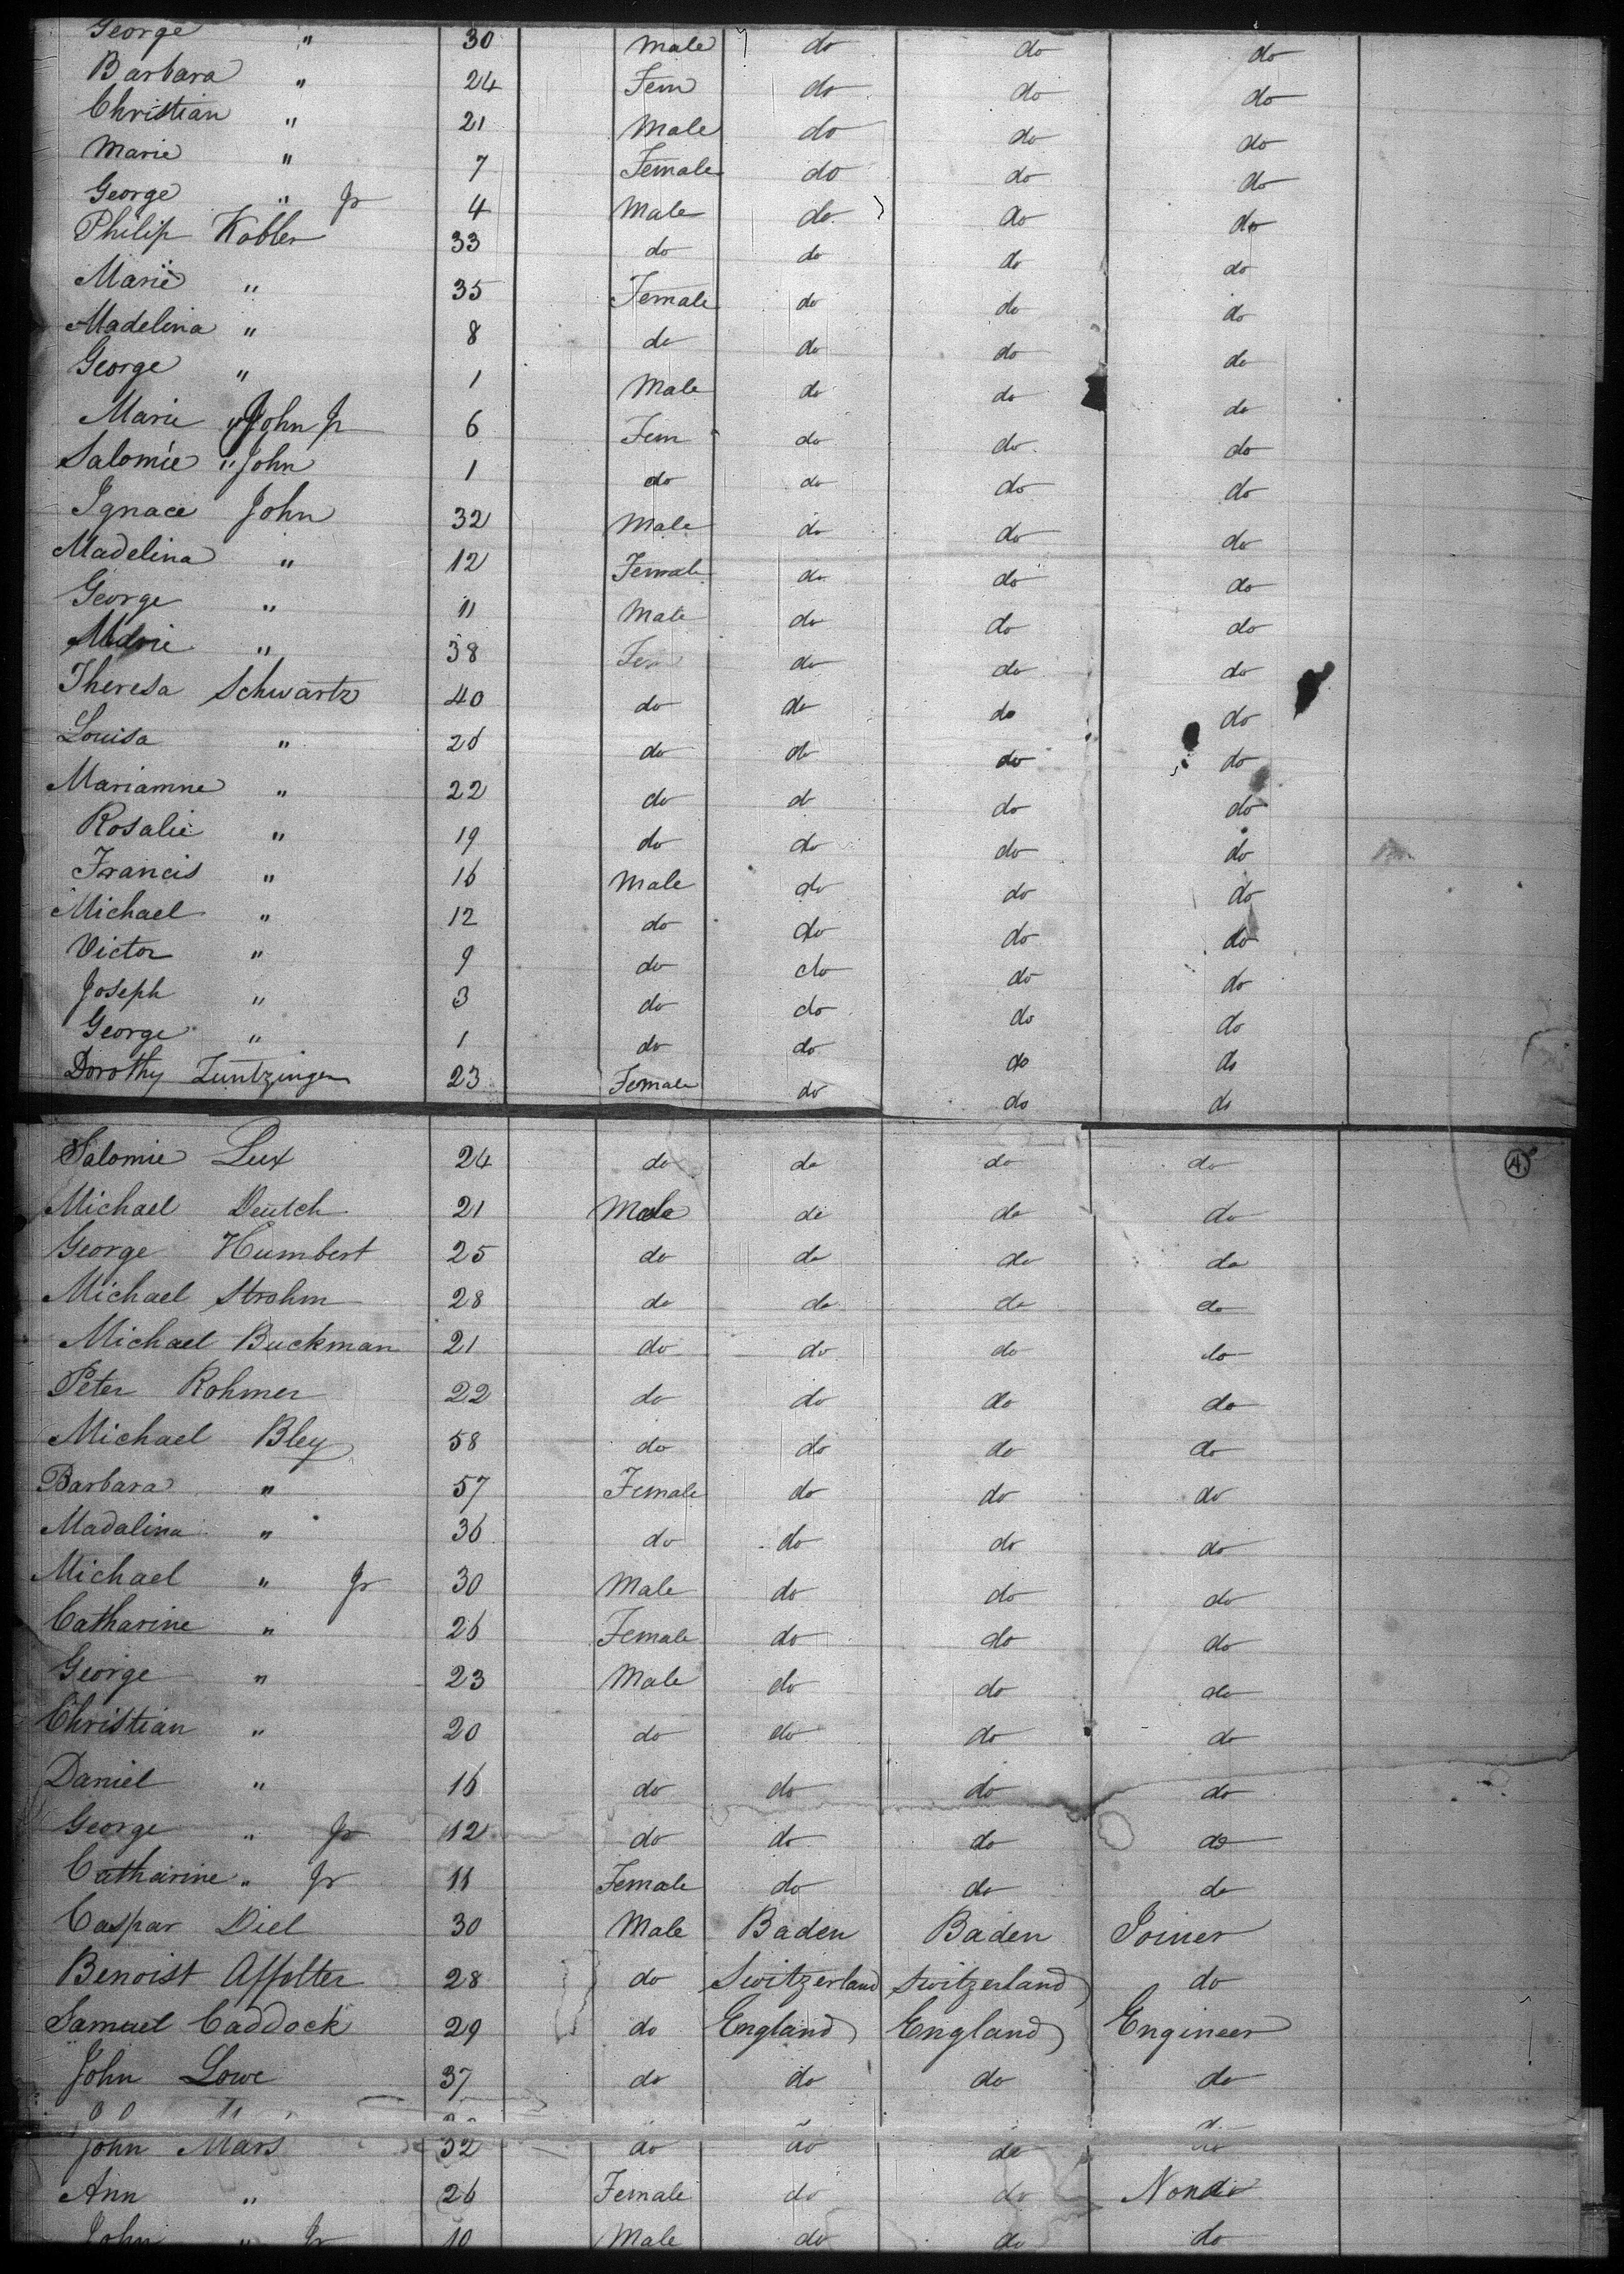 George " 30 Male do do do
Barbara " 24 Fem do do do
Christian " 21 Male do do do
Marie " 7 Female do do do
George " Jr 4 Male do do do
Philip Kobler 33 do do do do
Marie " 35 Female do do do
Madelina " 8 do do do do
George " 1 Male do do do
Marie " John Jr 6 Fem do do do
Salomie " John 1 do do do do
Ignace John 32 Male do do do
Madelina " 12 Female do do do
George " 11 Male do do do
Marie " 38 Fem do do do
Theresa Schwartz 40 do do do do
Louisa " 26 do do do do
Mariamne " 22 do do do do
Rosalie " 19 do do do do
Francis " 16 Male do do do
Michael " 12 do do do do
Victor " 9 do do do do
Joseph " 3 do do do do
George " 1 do do do do
Dorothy Zuntzinger 23 Female do do do
Salomie Lux 24 do do do do 4
Michael Deutch 21 Male do do do
George Humbert 25 do do do do
Michael Strohm 28 do do do do
Michael Buckman 21 do do do do
Peter Rohmer 22 do do do do
Michael Bley 58 do do do do
Barbara " 57 Female do do do
Madalina " 36 do do do do
Michael " Jr 30 Male do do do
Catharine " 26 Female do do do
George " 23 Male do do do
Christian " 20 do do do do
Daniel " 16 do do do do
George " Jr 12 do do do do
Catharine " Jr 11 Female do do do
Caspar Diel 30 Male Baden Baden Joiner
Benoist Affolter 28 do Switzerland Switzerland do
Samuel Caddock 29 do England England Engineer
John Lowe 37 do do do do
John Mars 32 do do do do
Ann " 26 Female do do None
John " Jr 10 Male do do do